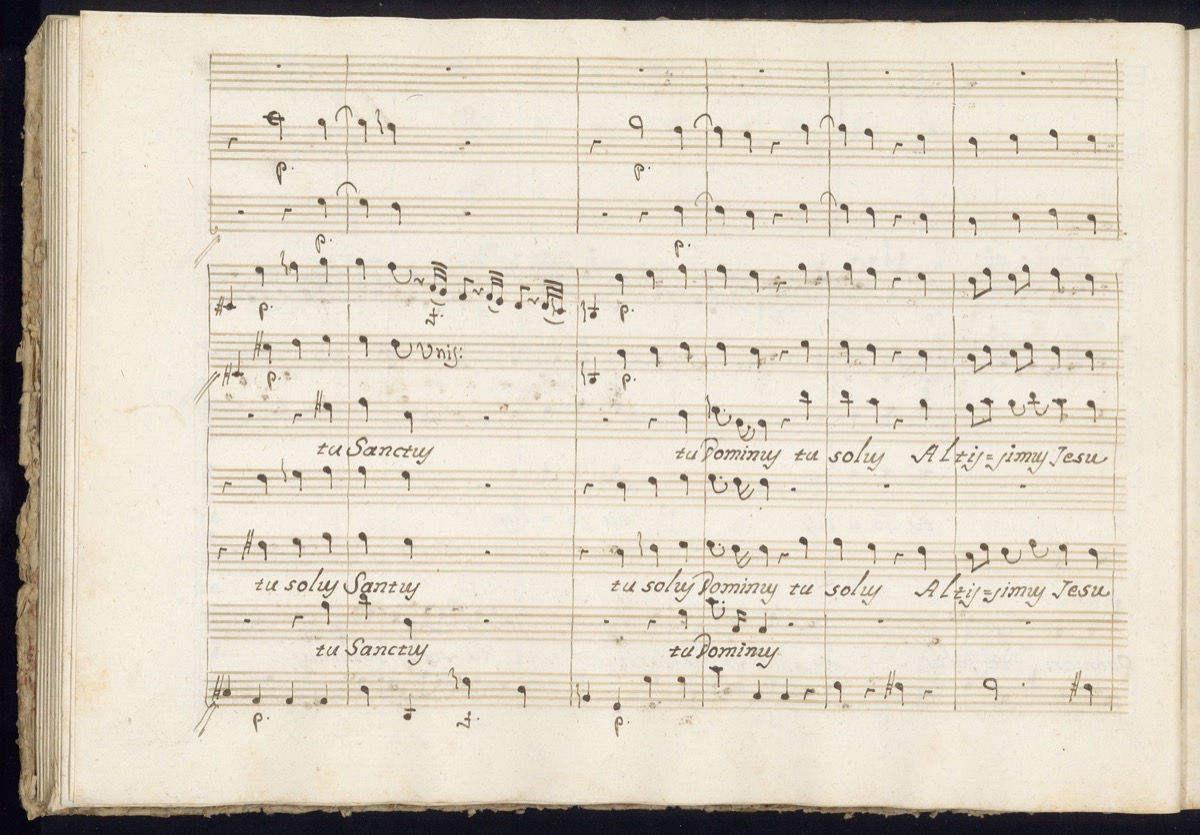 p. p.
p. p.
p. f. p.
p. Unis: p.
tu Sanctus tu Dominus tu solus Altis=simus Jesu
tu solus Santus tu solus Dominus tu solus Altis=simus Jesu
tu Sanctus tu Dominus
p. f. p.